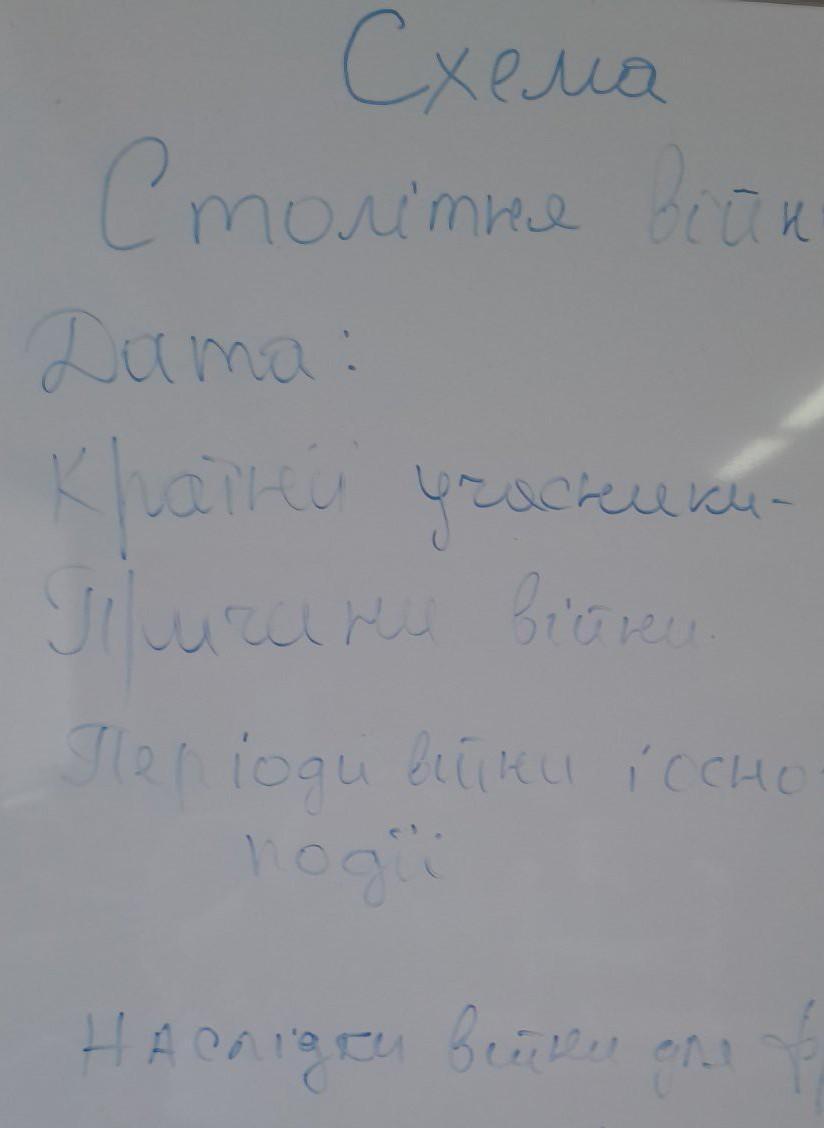 Схема
Столітня війн
Дата:
Країни учасники-
Причини війни
Періоди війни і осно
події
Наслідки війни для фр